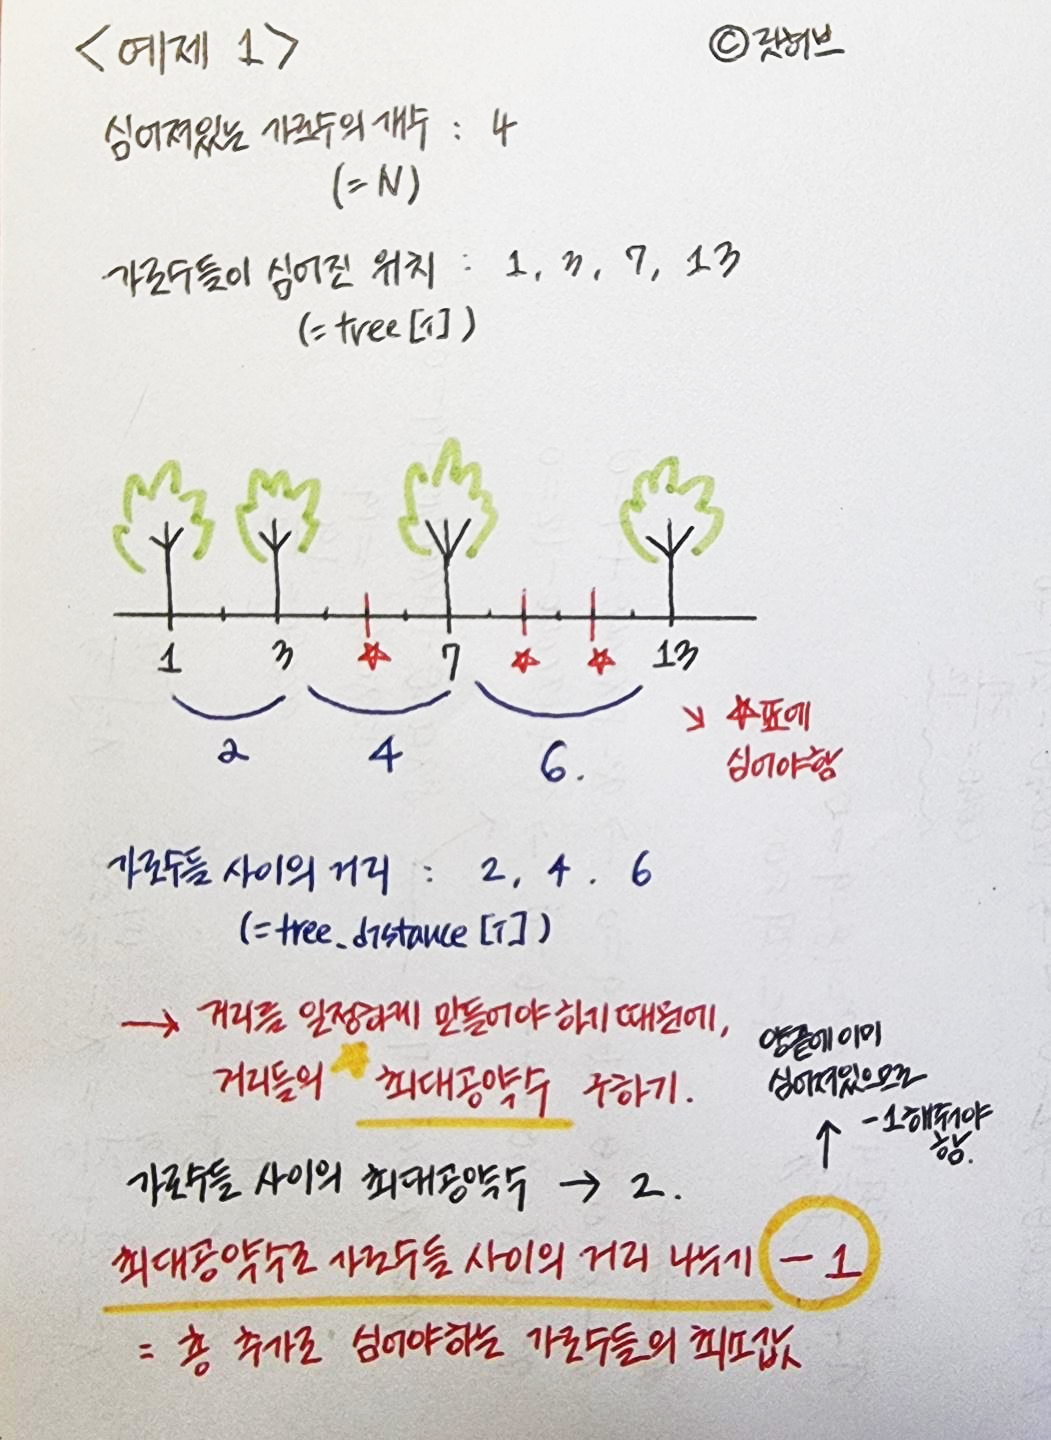 <예제 1>
© 릿허브
심어져있는 가로수의 개수 : 4
(= N)
가로수들이 심어진 위치 : 1, 3, 7, 13
(= tree[i])
1 3 ☆ 7 ☆ ☆ 13
2 4 6.
↘ ☆표에
심어야함
가로수들 사이의 거리 : 2, 4. 6
(= tree_distance[i])
→ 거리를 일정하게 만들어야 하기 때문에,
거리들의 ★ 최대공약수 구하기.
양끝에 이미
심어져있으므로
-1해줘야
함.
↑
가로수들 사이의 최대공약수 → 2.
최대공약수로 가로수들 사이의 거리 나누기 - 1
= 총 추가로 심어야하는 가로수들의 최소값